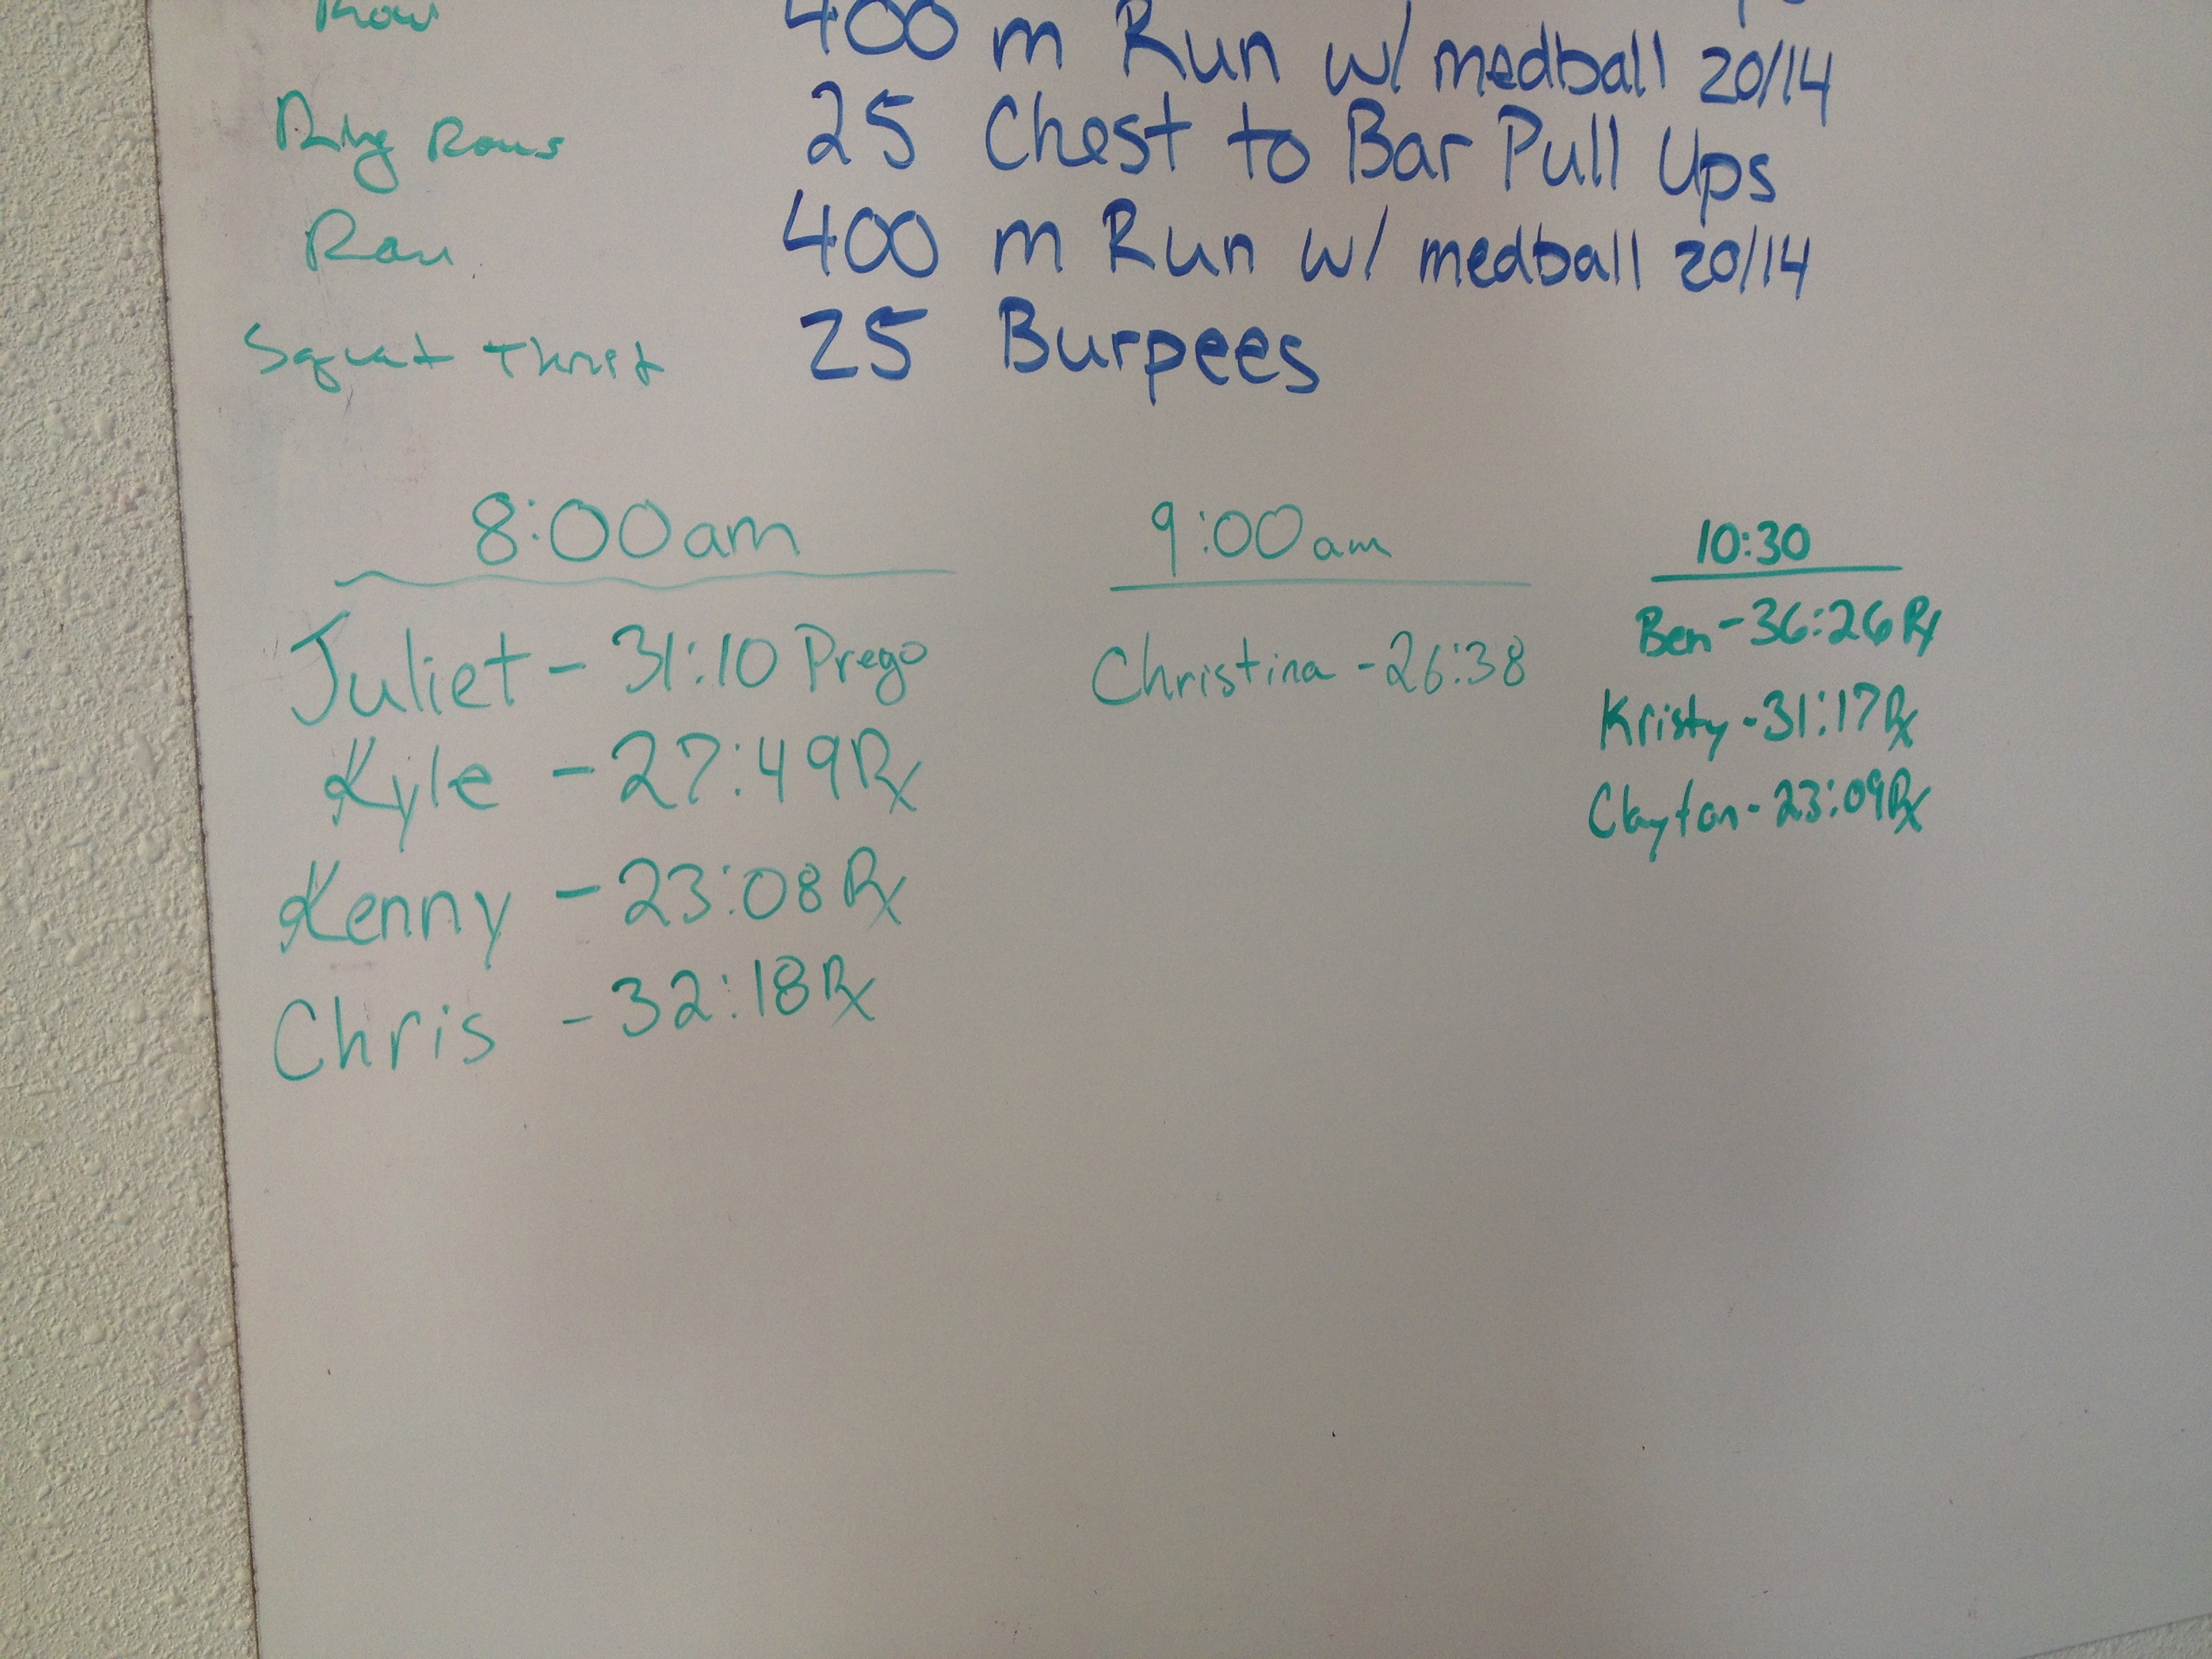 Row 400 m Run w/ medball 20/14
Ring Rows 25 Chest to Bar Pull Ups
Row 400 m Run w/ medball 20/14
Squat Thrust 25 Burpees
8:00am 9:00am 10:30
Juliet - 31:10 Prego
Kyle - 27:49 Rx
Kenny - 23:08 Rx
Chris - 32:18 Rx
Christina - 26:38
Ben - 36:26 Rx
Kristy - 31:17 Rx
Clayton - 23:09 Rx